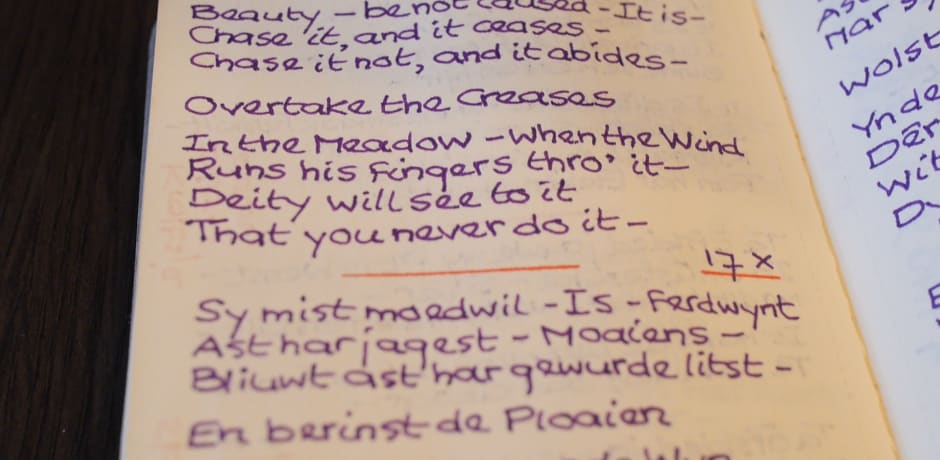 Beauty – be not caused – It is –
Chase it, and it ceases –
Chase it not, and it abides –
Overtake the Creases
In the Meadow – when the Wind
Runs his Fingers thro' it –
Deity will see to it
That you never do it –
17 x
Sy mist moedwil – Is – Ferdwynt
Ast har jagest – Moaiens –
Bliuwt ast har gewurde litst –
En berinst de Ploaien
wolst
Yn de
Dêr